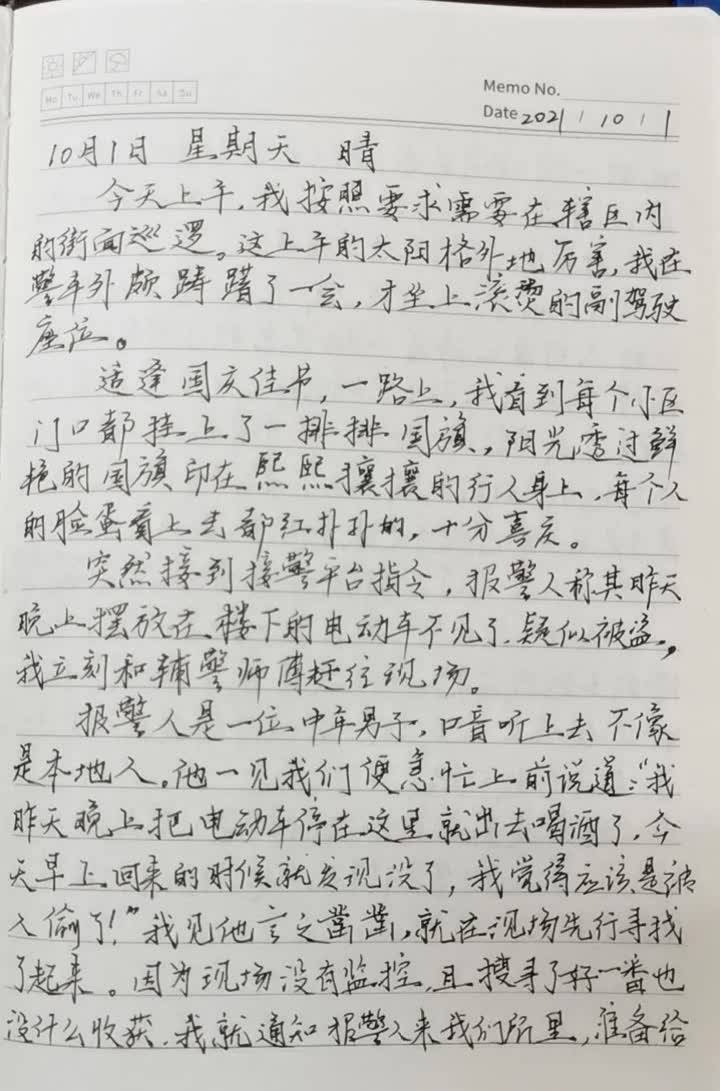 Mo Tu We Th Fr Sa Su
Memo No.
Date 2021 / 10 / 1
10月1日 星期天 晴
今天上午,我按照要求需要在辖区内
的街面巡逻。这上午的太阳格外地厉害,我在
警车外颇踌躇了一会,才坐上滚烫的副驾驶
座位。
适逢国庆佳节,一路上,我看到每个小区
门口都挂上了一排排国旗,阳光透过鲜
艳的国旗印在熙熙攘攘的行人身上,每个人
的脸蛋看上去都红扑扑的,十分喜庆。
突然接到接警平台指令,报警人称其昨天
晚上摆放在楼下的电动车不见了,疑似被盗,
我立刻和辅警师傅赶往现场。
报警人是一位中年男子,口音听上去不像
是本地人。他一见我们便急忙上前说道:“我
昨天晚上把电动车停在这里就出去喝酒了,今
天早上回来的时候就发现没了,我觉得应该是被
人偷了!”我见他言之凿凿,就在现场先行寻找
了起来。因为现场没有监控,且搜寻了好一番也
没什么收获,我就通知报警人来我们所里,准备给